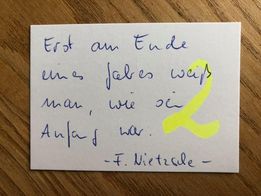 Erst am Ende
eines Jahres weiß
man, wie sein
Anfang war.
2
- F. Nietzsche -